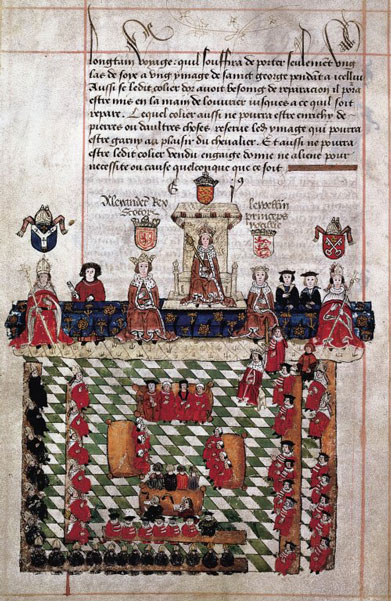 longtain voyage: quil souffira de porter seulement ung
las de soye a ung ymage de sainct george pendant a icelluy
Aussi se ledit colier dor avoit besoing de reparacion il pora
estre mis en la main de louvrier iusques a ce quil soit
repare. Lequel colier aussi ne pourra estre enrichy de
pierres ou daultres choses reserve led ymage qui pourra
estre garny au plaisir du chevalier. Et aussi ne pourra
estre ledit colier vendu engaige donne ne aliene pour
necessite ou cause quelconque que ce soit.
Alexander Rex
Scotor
lewellin
princeps
wallie